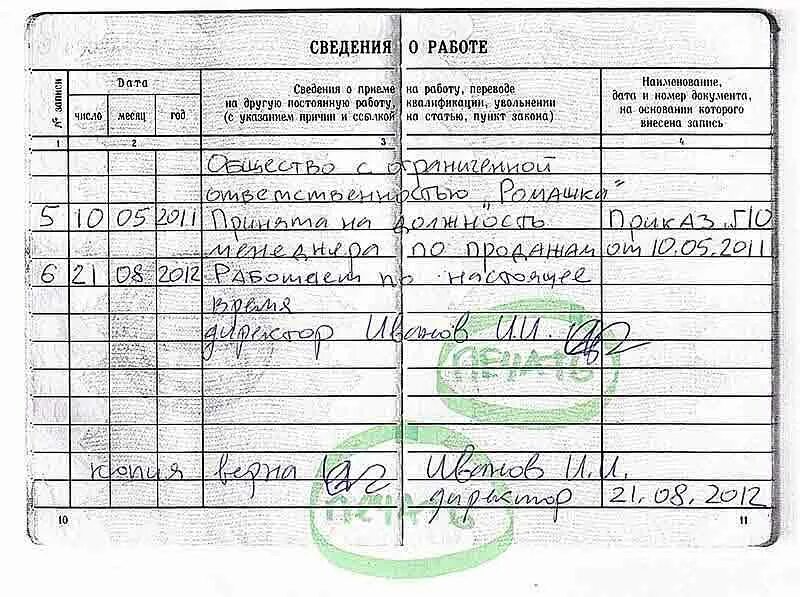 СВЕДЕНИЯ О РАБОТЕ
№ записи
Дата
число месяц год
Сведения о приеме на работу, переводе
на другую постоянную работу, квалификации, увольнении
(с указанием причин и ссылкой на статью, пункт закона)
Наименование,
дата и номер документа,
на основании которого
внесена запись
1 2 3 4
Общество с ограниченной
ответственностью „Ромашка"
5 10 05 2011 Принята на должность Приказ
менеджера по продажам от 10.05.2011
6 21 08 2012 Работает по настоящее
время
директор Иванов И.И.
ПЕЧАТЬ
копия верна Иванов И.И.
ПЕЧАТЬ
директор 21.08.2012
10 11